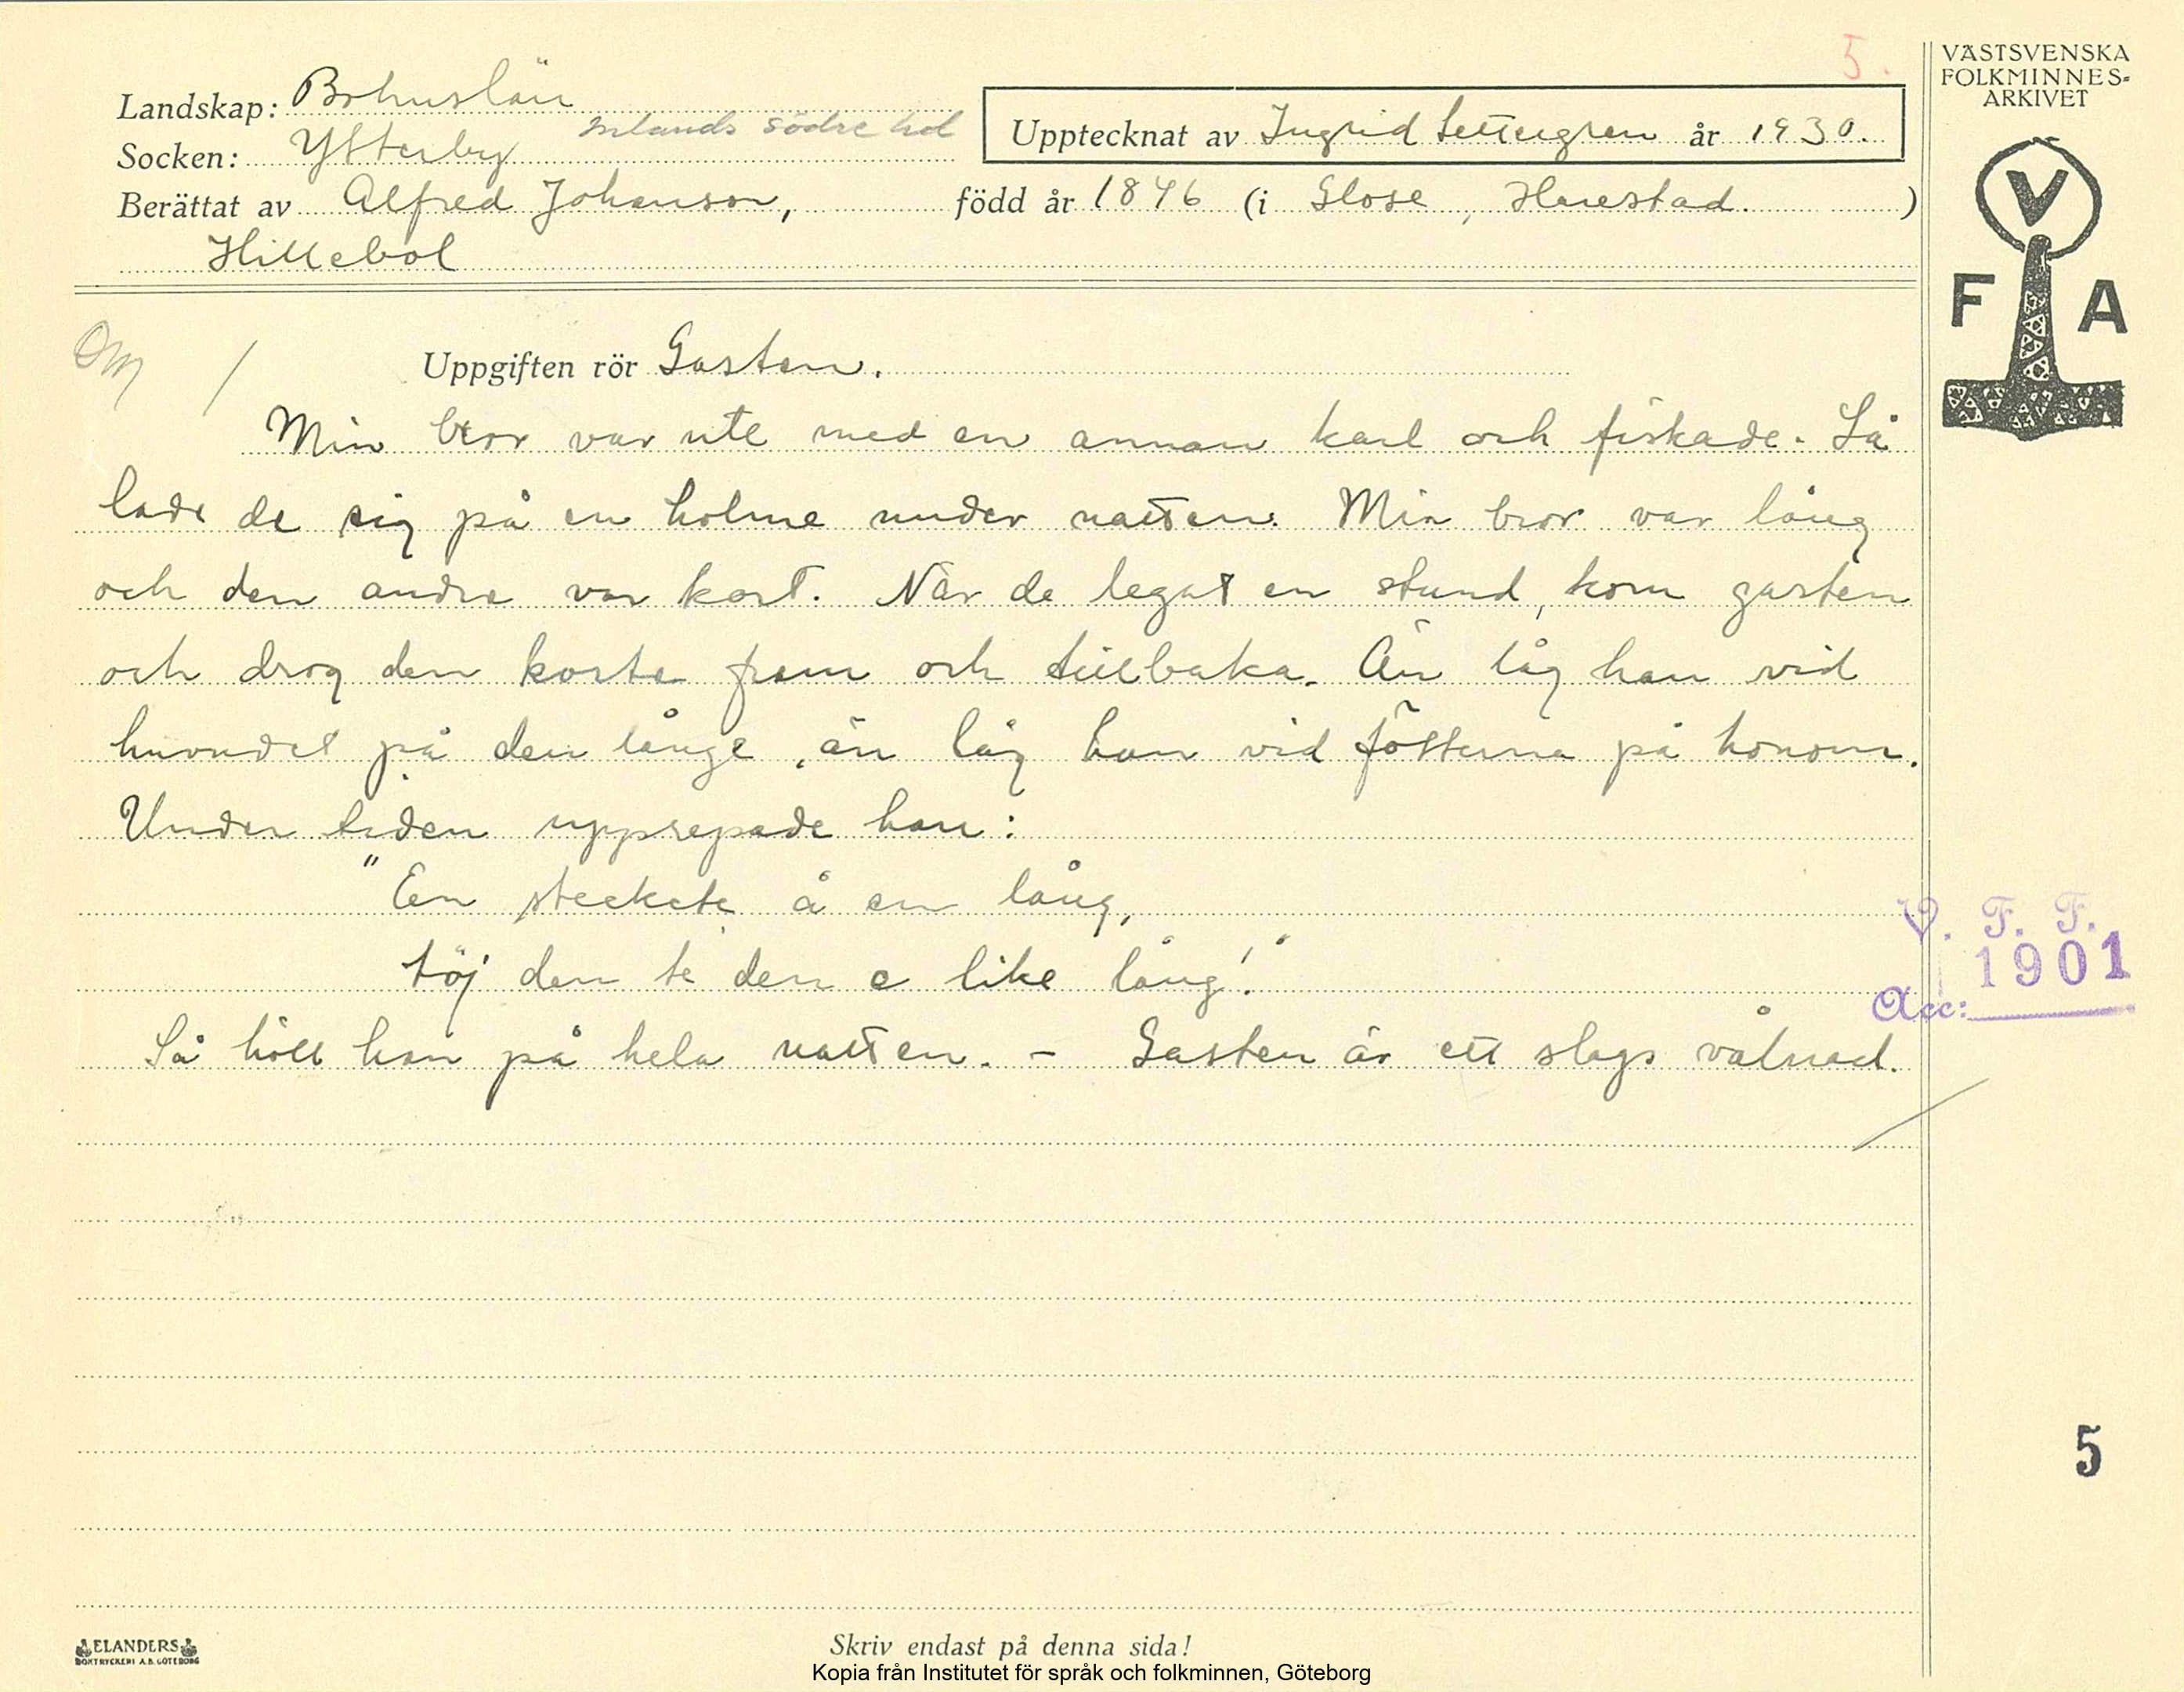 5.
VÄSTSVENSKA
FOLKMINNES-
ARKIVET
Landskap: Bohuslän
Socken: Ytterby Inlands södre hd
Upptecknat av Ingrid Settergren år 1930.
Berättat av Alfred Johanson, född år 1846 (i Glose, Harestad. )
Hillebol
V
F A
Uppgiften rör Gasten.
Min bror var ute med en annan karl och fiskade. Så
lade de sig på en holme under natten. Min bror var lång
och den andre var kort. När de legat en stund, kom gasten
och drog den korte fram och tillbaka. Än låg han vid
huvudet på den långe, än låg han vid fötterna på honom.
Under tiden upprepade han:
"En steckete å en lång,
töj den te den e like lång!"
Så höll han på hela natten. - Gasten är ett slags vålnad.
V. F. F.
1901
Acc:
5
ELANDERS
BOKTRYCKERI A.B. GÖTEBORG
Skriv endast på denna sida!
Kopia från Institutet för språk och folkminnen, Göteborg